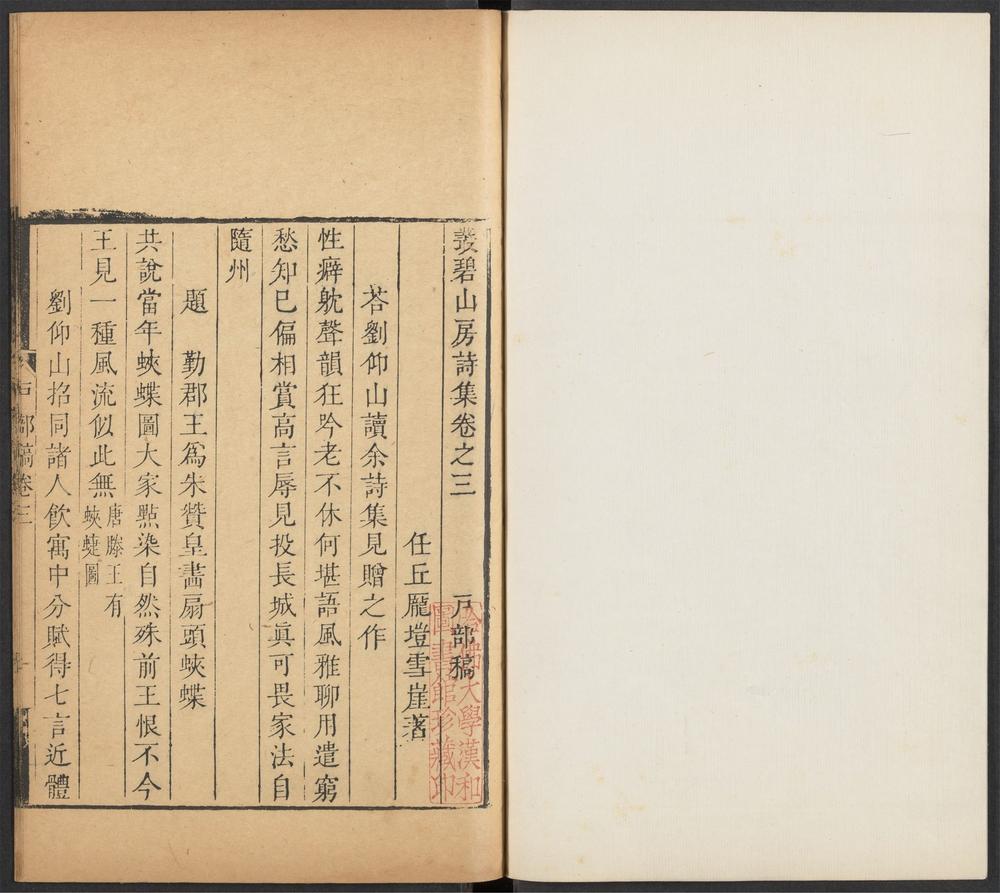 叢碧山房詩集卷之三　戸部稿
任丘龐塏雪崖著
荅劉仰山讀余詩集見贈之作
性癖躭聲韻狂吟老不休何堪語風雅聊用遣窮
愁知已偏相賞高言辱見投長城眞可畏家法自
隨州
題　勤郡王爲朱贊皇畵扇頭蛺蝶
共說當年蛺蝶圖大家㸃染自然殊前王恨不今
王見一種風流似此無
唐滕王有
蛺蝶圖
劉仰山招同諸人飲寓中分賦得七言近體
戸部稿卷三
哈佛大學漢和
圖書館珍藏印